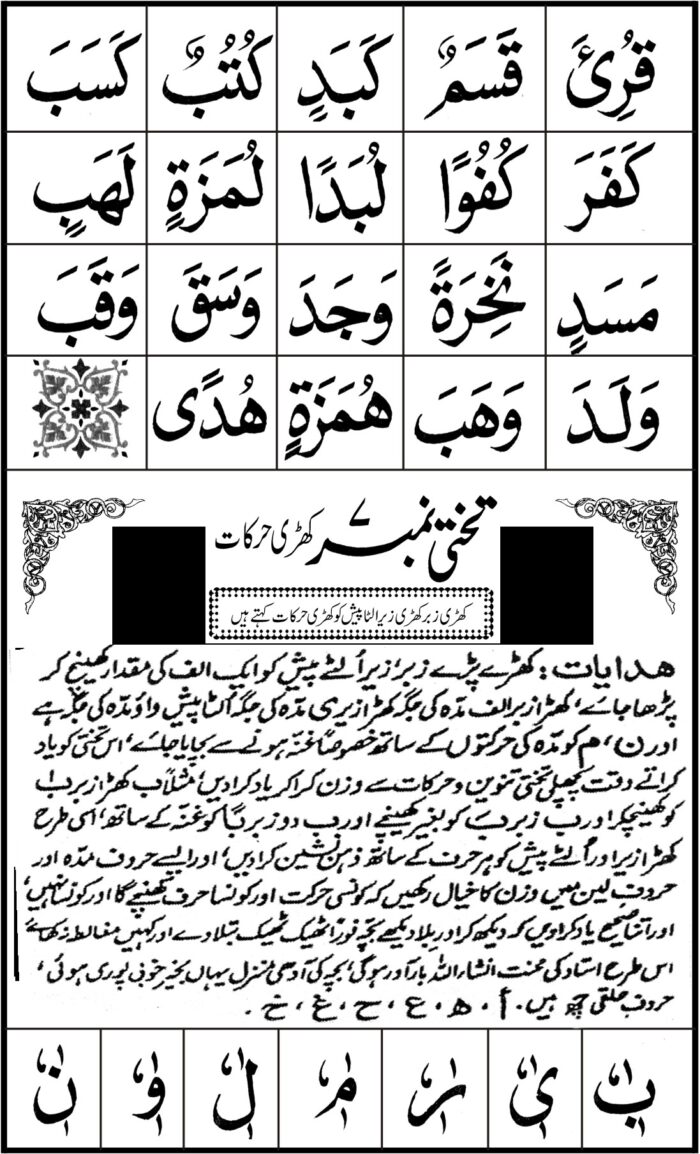 قُرِئَ قَسَمٌ كَبَدٍ كُتُبٌ كَسَبَ
كَفَرَ كُفُوًا لُبَدًا لُمَزَةٍ لَهَبٍ
مَسَدٍ نَخِرَةً وَجَدَ وَسَقَ وَقَبَ
وَلَدَ وَهَبَ هُمَزَةٍ هُدًى
تختی نمبر ۷ کھڑی حرکات
کھڑی زبر کھڑی زیر الٹا پیش کو کھڑی حرکات کہتے ہیں
ھدایات: کھڑے پڑے زبر، زیر اُلٹے پیش کو ایک الف کی مقدار کھینچ کر
پڑھا جائے، کھڑا زبر الف مدّہ کی جگہ کھڑا زیر ی مدّہ کی جگہ اُلٹا پیش واؤ مدّہ کی جگہ ہے
اور ن، م کو مدّہ کی حرکتوں کے ساتھ خصوصاً غنّہ ہونے سے بچایا جائے، اس تختی کو یاد
کراتے وقت پچھلی تختی تنوین و حرکات سے وزن کرا کر یاد کرا دیں، مثلاً ب کھڑا زبر بٰ
کو کھینچکر اور ب زبر بَ کو بغیر کھینچے اور ب دو زبر بًا کو غنّہ کے ساتھ، اسی طرح
کھڑا زیر اور اُلٹے پیش کو ہر حرف کے ساتھ ذہن نشین کرا دیں، اور ایسے حروف مدہ اور
حروف لین میں وزن کا خیال رکھیں کہ کونسی حرکت اور کونسا حرف کھنچے گا اور کونسا نہیں،
اور اتنا صحیح یاد کرا دیں کہ دیکھ کر اور بلا دیکھے بچّہ فوراً ٹھیک ٹھیک بتلا دے اور کہیں مغالطہ نہ کھائے
اس طرح استاد کی محنت انشاء اللہ بار آور ہوگی، بچہ کی آدھی منزل یہاں بخیر خوبی پوری ہوئی،
حروف حلقی چھ ہیں. أ، ھ، ع، ح، غ، خ.
بٰٖٗ یٰٖٗ رٰٖٗ مٰٖٗ لٰٖٗ وٰٖٗ نٰٖٗ